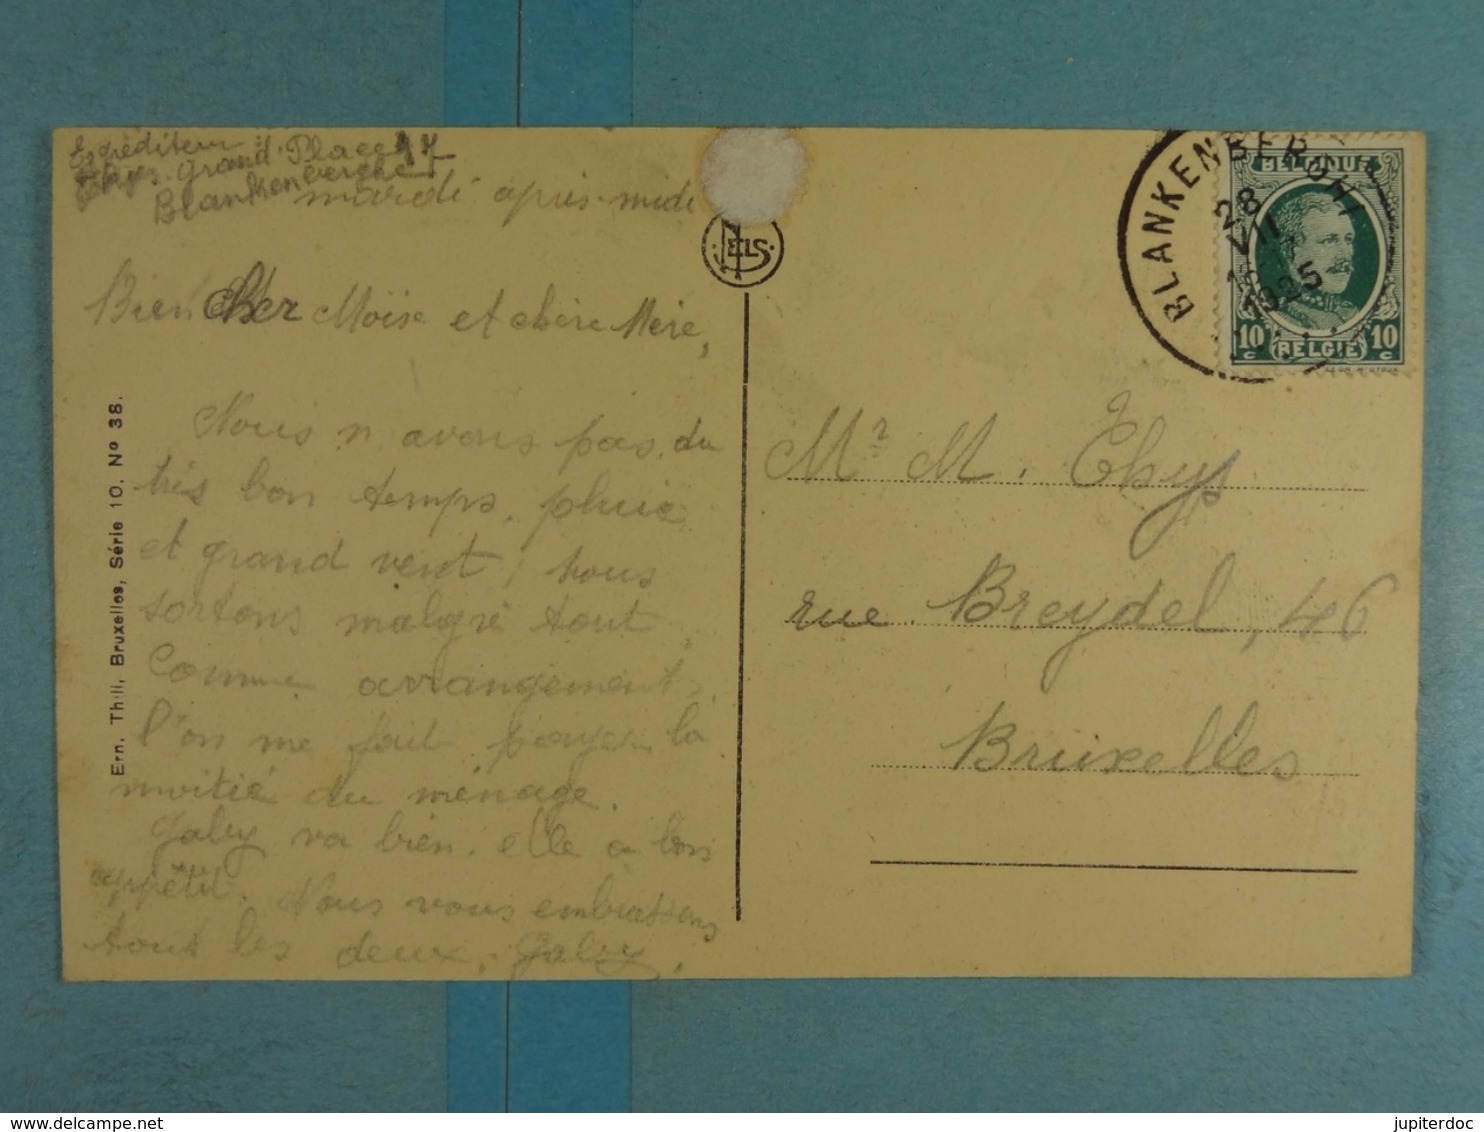 Expéditeur
Thys. Grand'Place 17
Blankenberghe
mardi après-midi
Bien Cher Moïse et chère Mère,
Nous n'avons pas du
très bon temps, pluie
et grand vent; nous
sortons malgré tout
Comme arrangement,
l'on me fait payer la
moitié du ménage.
Gaby va bien. elle a bon
appétit. Nous vous embrassons
tout les deux. Gaby.
Ern. Thill, Bruxelles, Série 10, Nº 38.
NELS
BLANKENBERGHE
28
VII
1925
BELGIQUE
10 c
BELGIË
10 c
Mr M. Thys
rue Breydel, 46
Bruxelles
jupiterdoc